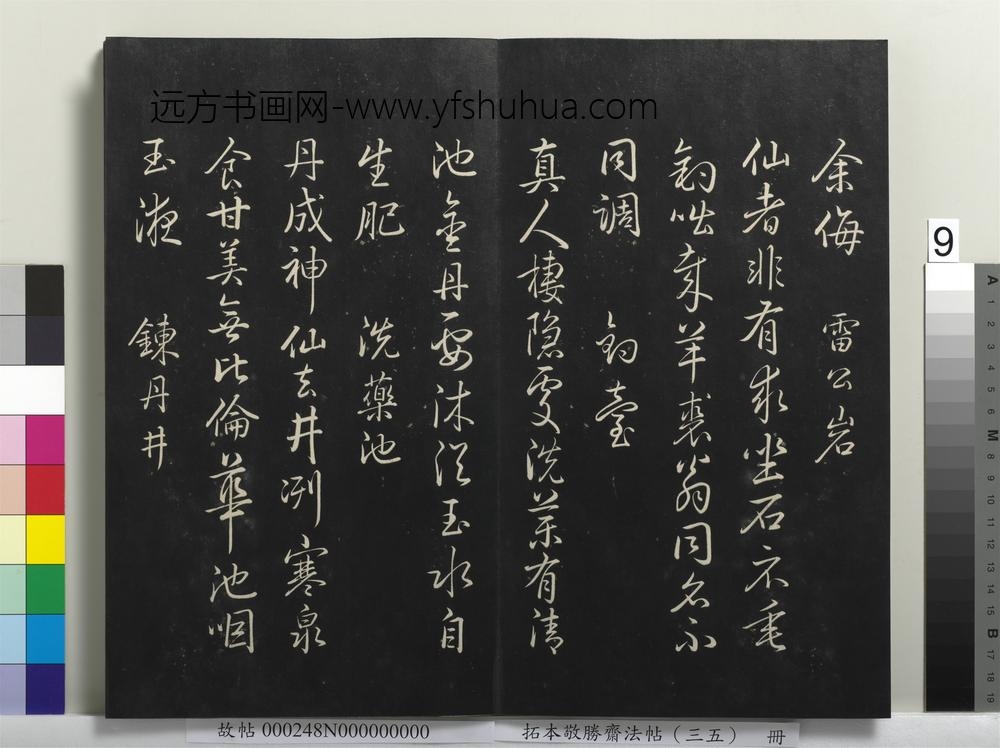 远方书画网-www.yfshuhua.com
余侮　雷公岩
仙者非有求坐石不垂
釣咄哉羊裘翁同名不
同調　釣臺
真人棲隱處洗药有清
池金丹要沐浴玉水自
生肥　洗藥池
丹成神仙去井冽寒泉
食甘美無比倫華池咽
玉液　鍊丹井
9
A 1 2 3 4 5 6 M 8 9 10 11 12 13 14 15 B 17 18 19
故帖 000248N000000000
拓本敬勝齋法帖（三五） 冊